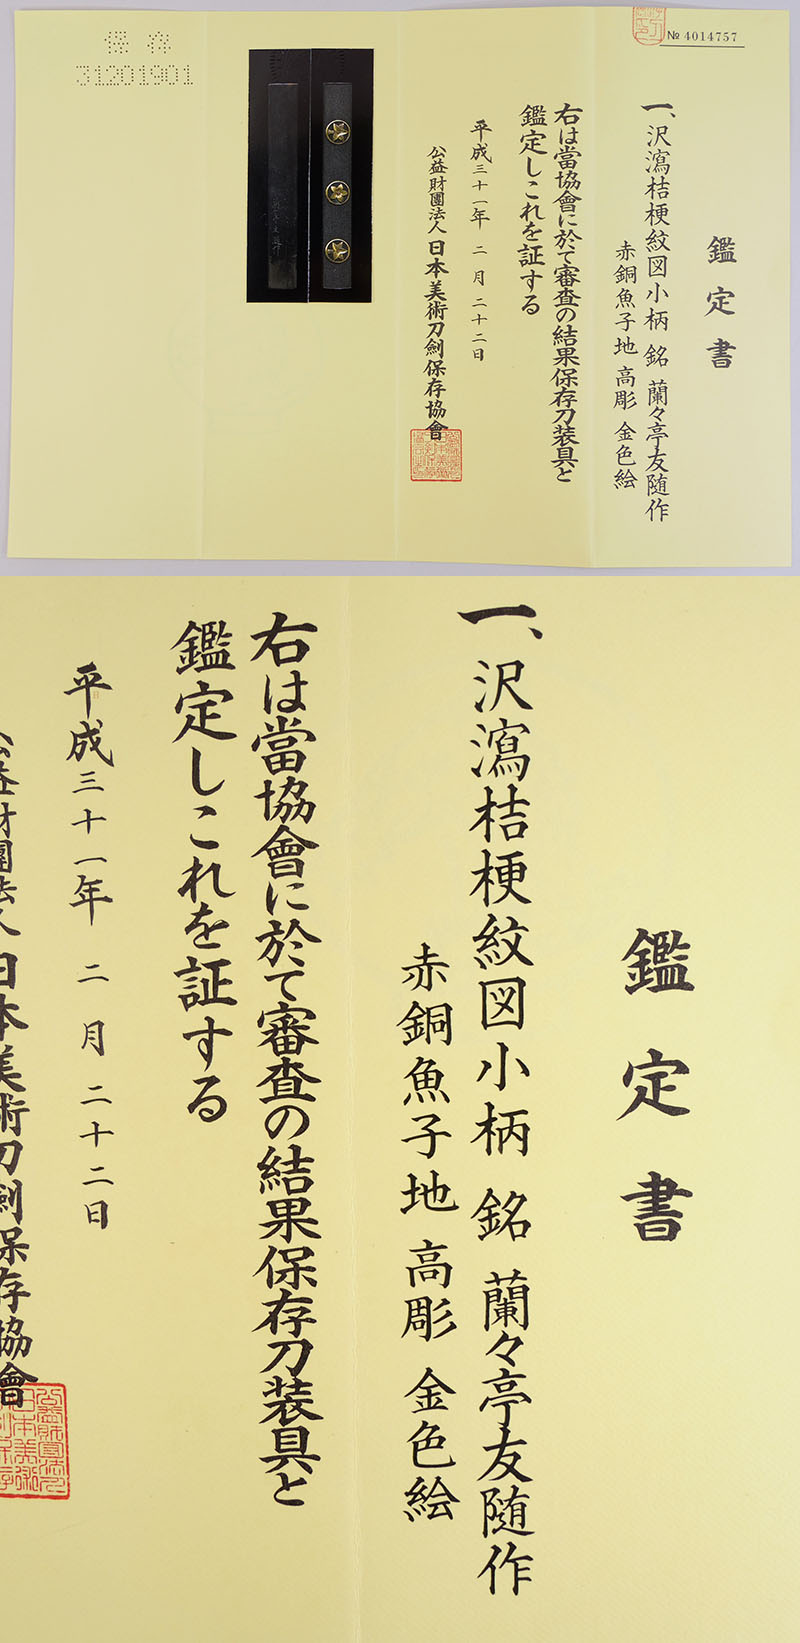 № 4014757
鑑定書
一、沢瀉桔梗紋図小柄 銘 蘭々亭友随作
赤銅魚子地 高彫 金色絵
右は當協會に於て審査の結果保存刀装具と
鑑定しこれを証する
平成三十一年 二月 二十二日
公益財團法人 日本美術刀劍保存協會
保存
31201901
鑑定書
一、沢瀉桔梗紋図小柄 銘 蘭々亭友随作
赤銅魚子地 高彫 金色絵
右は當協會に於て審査の結果保存刀装具と
鑑定しこれを証する
平成三十一年 二月 二十二日
公益財團法人 日本美術刀劍保存協會